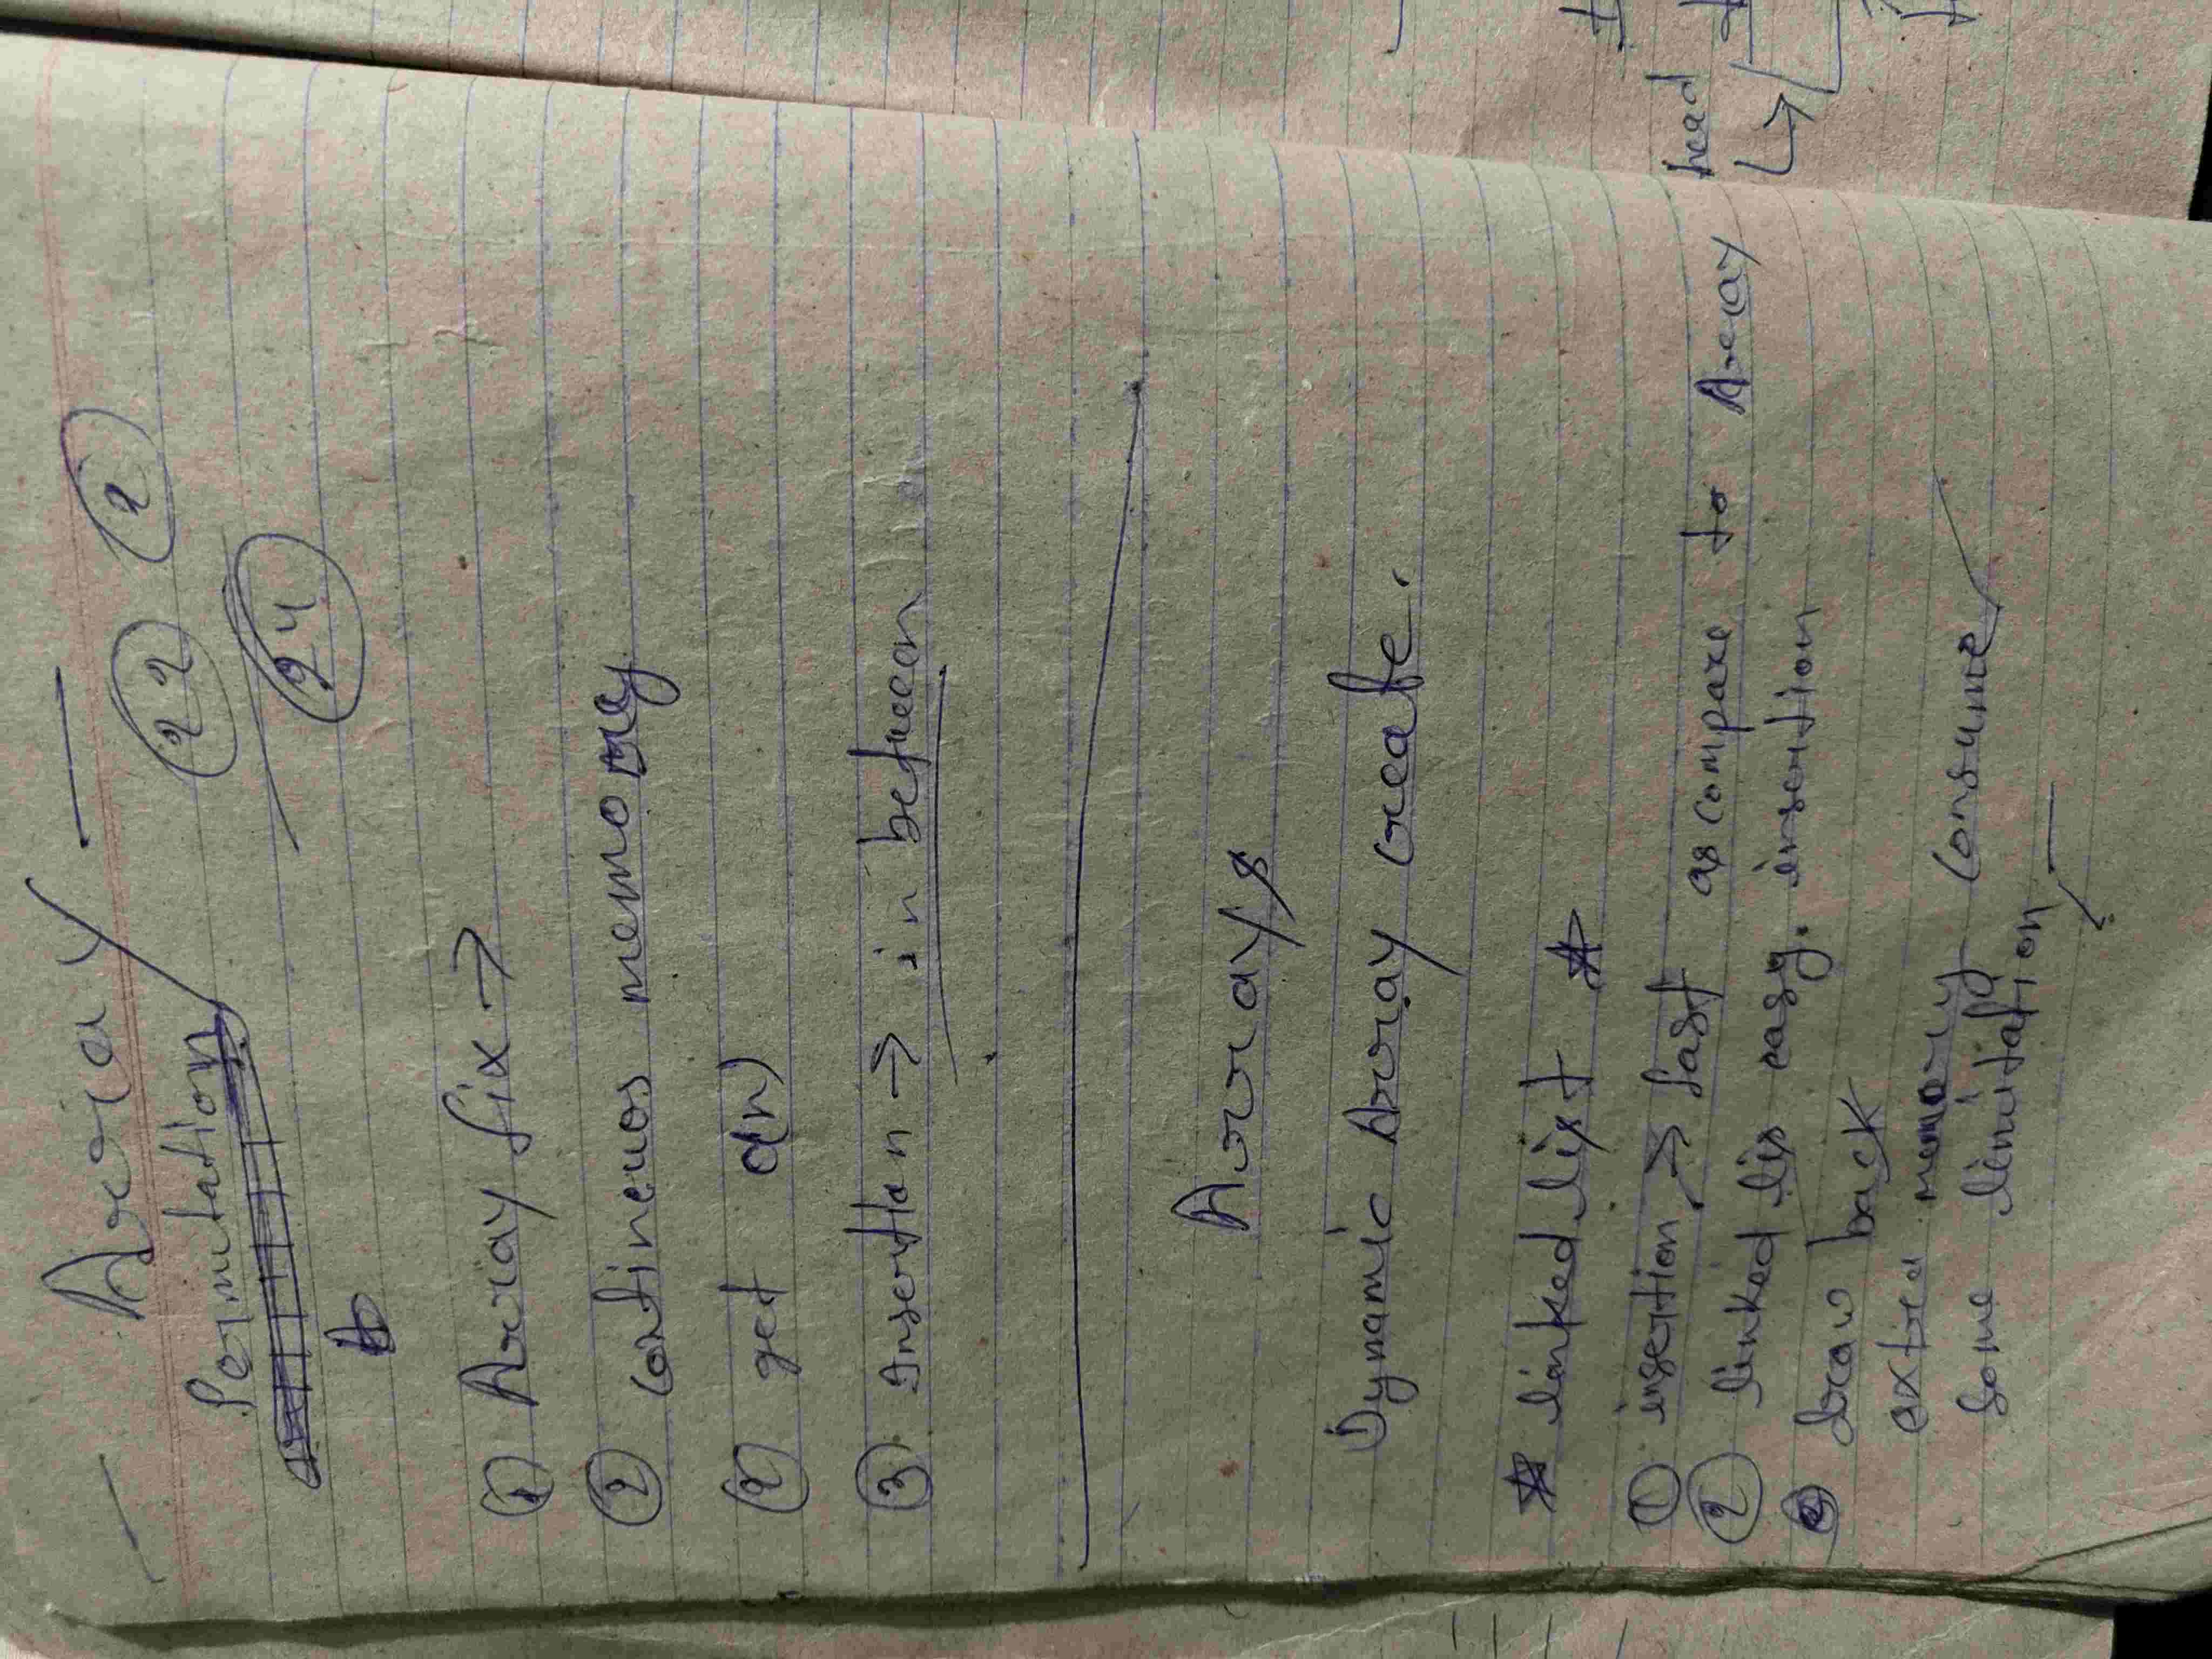 - Array -
Permutation
22 2
24
① Array fix →
② continuous memory
② get O(n)
③ Insertion → in between
Arrays
Dynamic Array create.
☆ linked list ☆
① insertion → fast as compare to Array
② linked lis easy. insertion
draw back
extra memory consume
some limitation
head